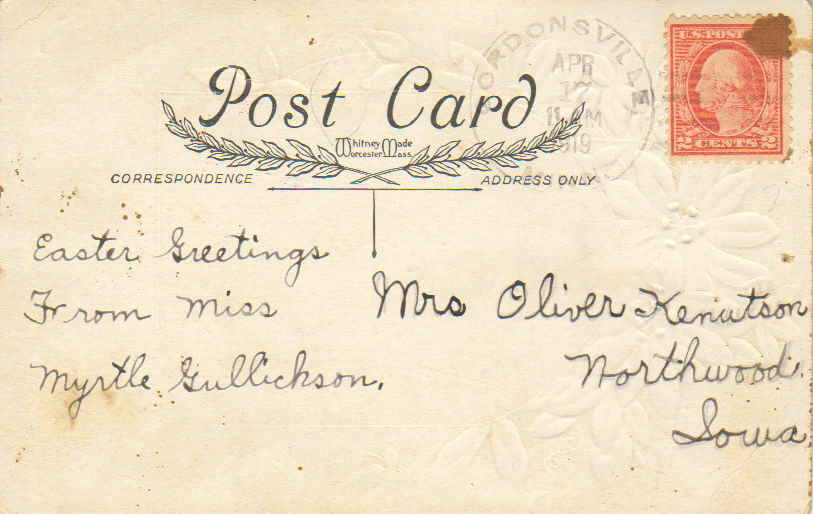 Post Card
Whitney Made
Worcester Mass.
CORRESPONDENCE
ADDRESS ONLY
ORDONSVILLE
APR
17
11 AM
1919
U.S. POST
2 CENTS 2
Easter Greetings
From Miss
Myrtle Gullickson.
Mrs Oliver Kenutson
Northwood.
Iowa.